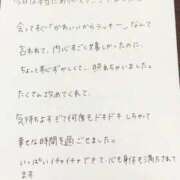 会ってすぐ「かわいいからラッキー」なんて
言われて、内心すごく嬉しかったのに、
ちょっと恥ずかしくて、照れちゃいました。
たくさん攻めてくれて、
気持ちよすぎて何度もドキドキしちゃって
幸せな時間を過ごせました。
いっぱいイチャイチャできて、心も身体も満たされて
ます